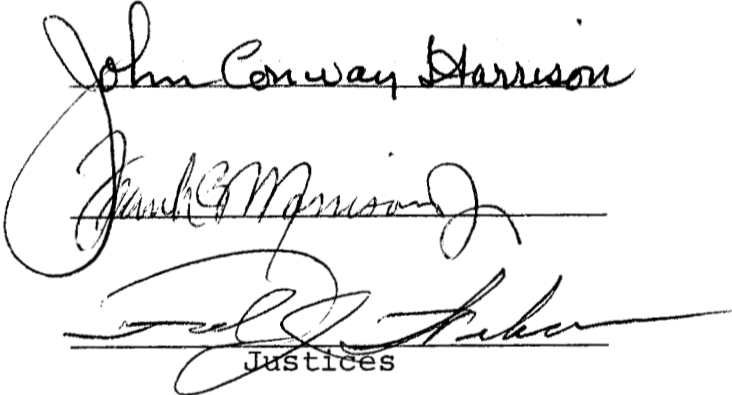 John Conway Harrison
Frank B Morrison Jr
Fred J. Weber
Justices